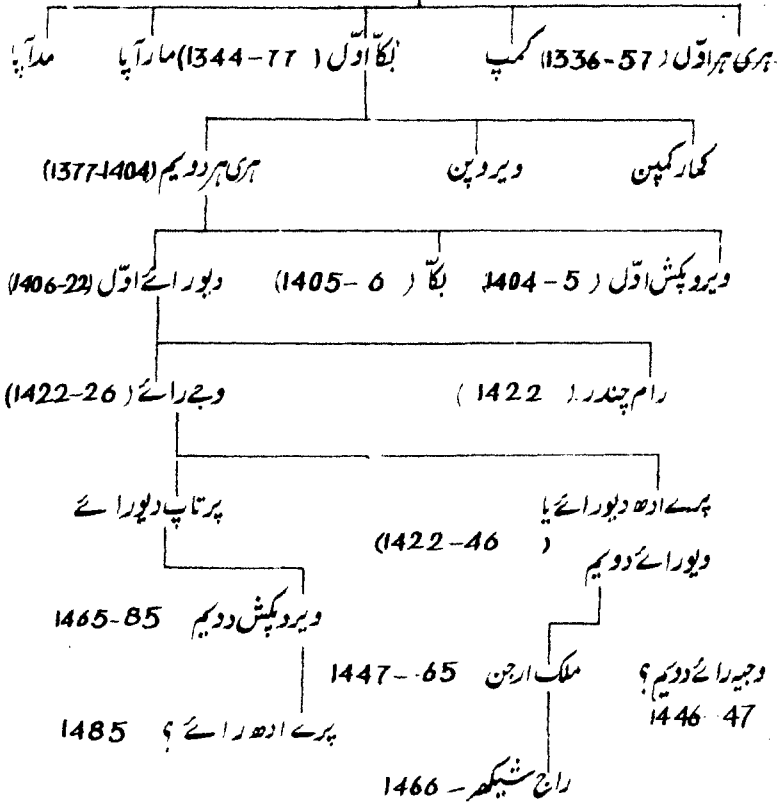 ہری ہر اوّل (1336-57) کمپ بکّا اوّل (1344-77) مارآپا مدآپا
کمار کمپن ویروپن ہری ہر دویم (1377-1404)
ویروپکش اوّل (1404-5) بکّا (1405-6) دیورائے اوّل (1406-22)
رام چندر (1422) وجے رائے (1422-26)
پرے ادھ دیورائے یا پرتاپ دیورائے
دیورائے دویم (1422-46)
ویروپکش دویم 1465-85
وجیہ رائے دویم؟ ملک ارجن 1447-65
1446-47
پرے ادھ رائے؟ 1485
راج شیکھر - 1466